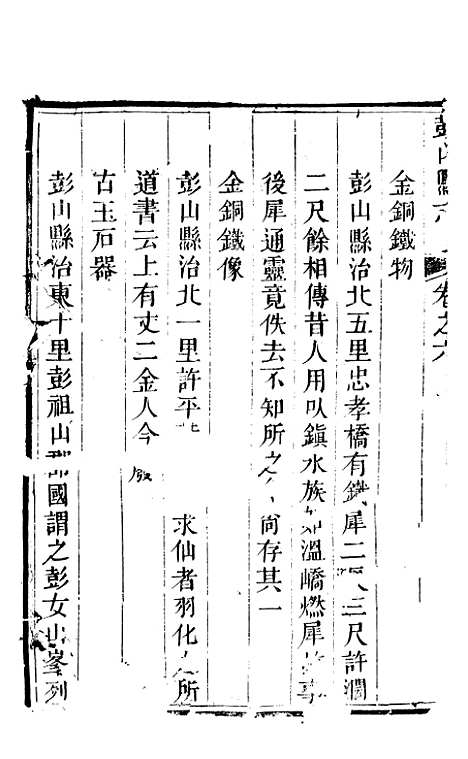 彭山縣志 卷之六
金銅鐵物
彭山縣治北五里忠孝橋有鐵犀二 三尺許濶
二尺餘相傳昔人用以鎮水族如溫嶠燃犀故事
後犀通靈竟佚去不知所之今尚存其一
金銅鐵像
彭山縣治北一里許平 求仙者羽化之所
道書云上有丈二金人今 廢
古玉石器
彭山縣治東十里彭祖山郡 國謂之彭女山峯列